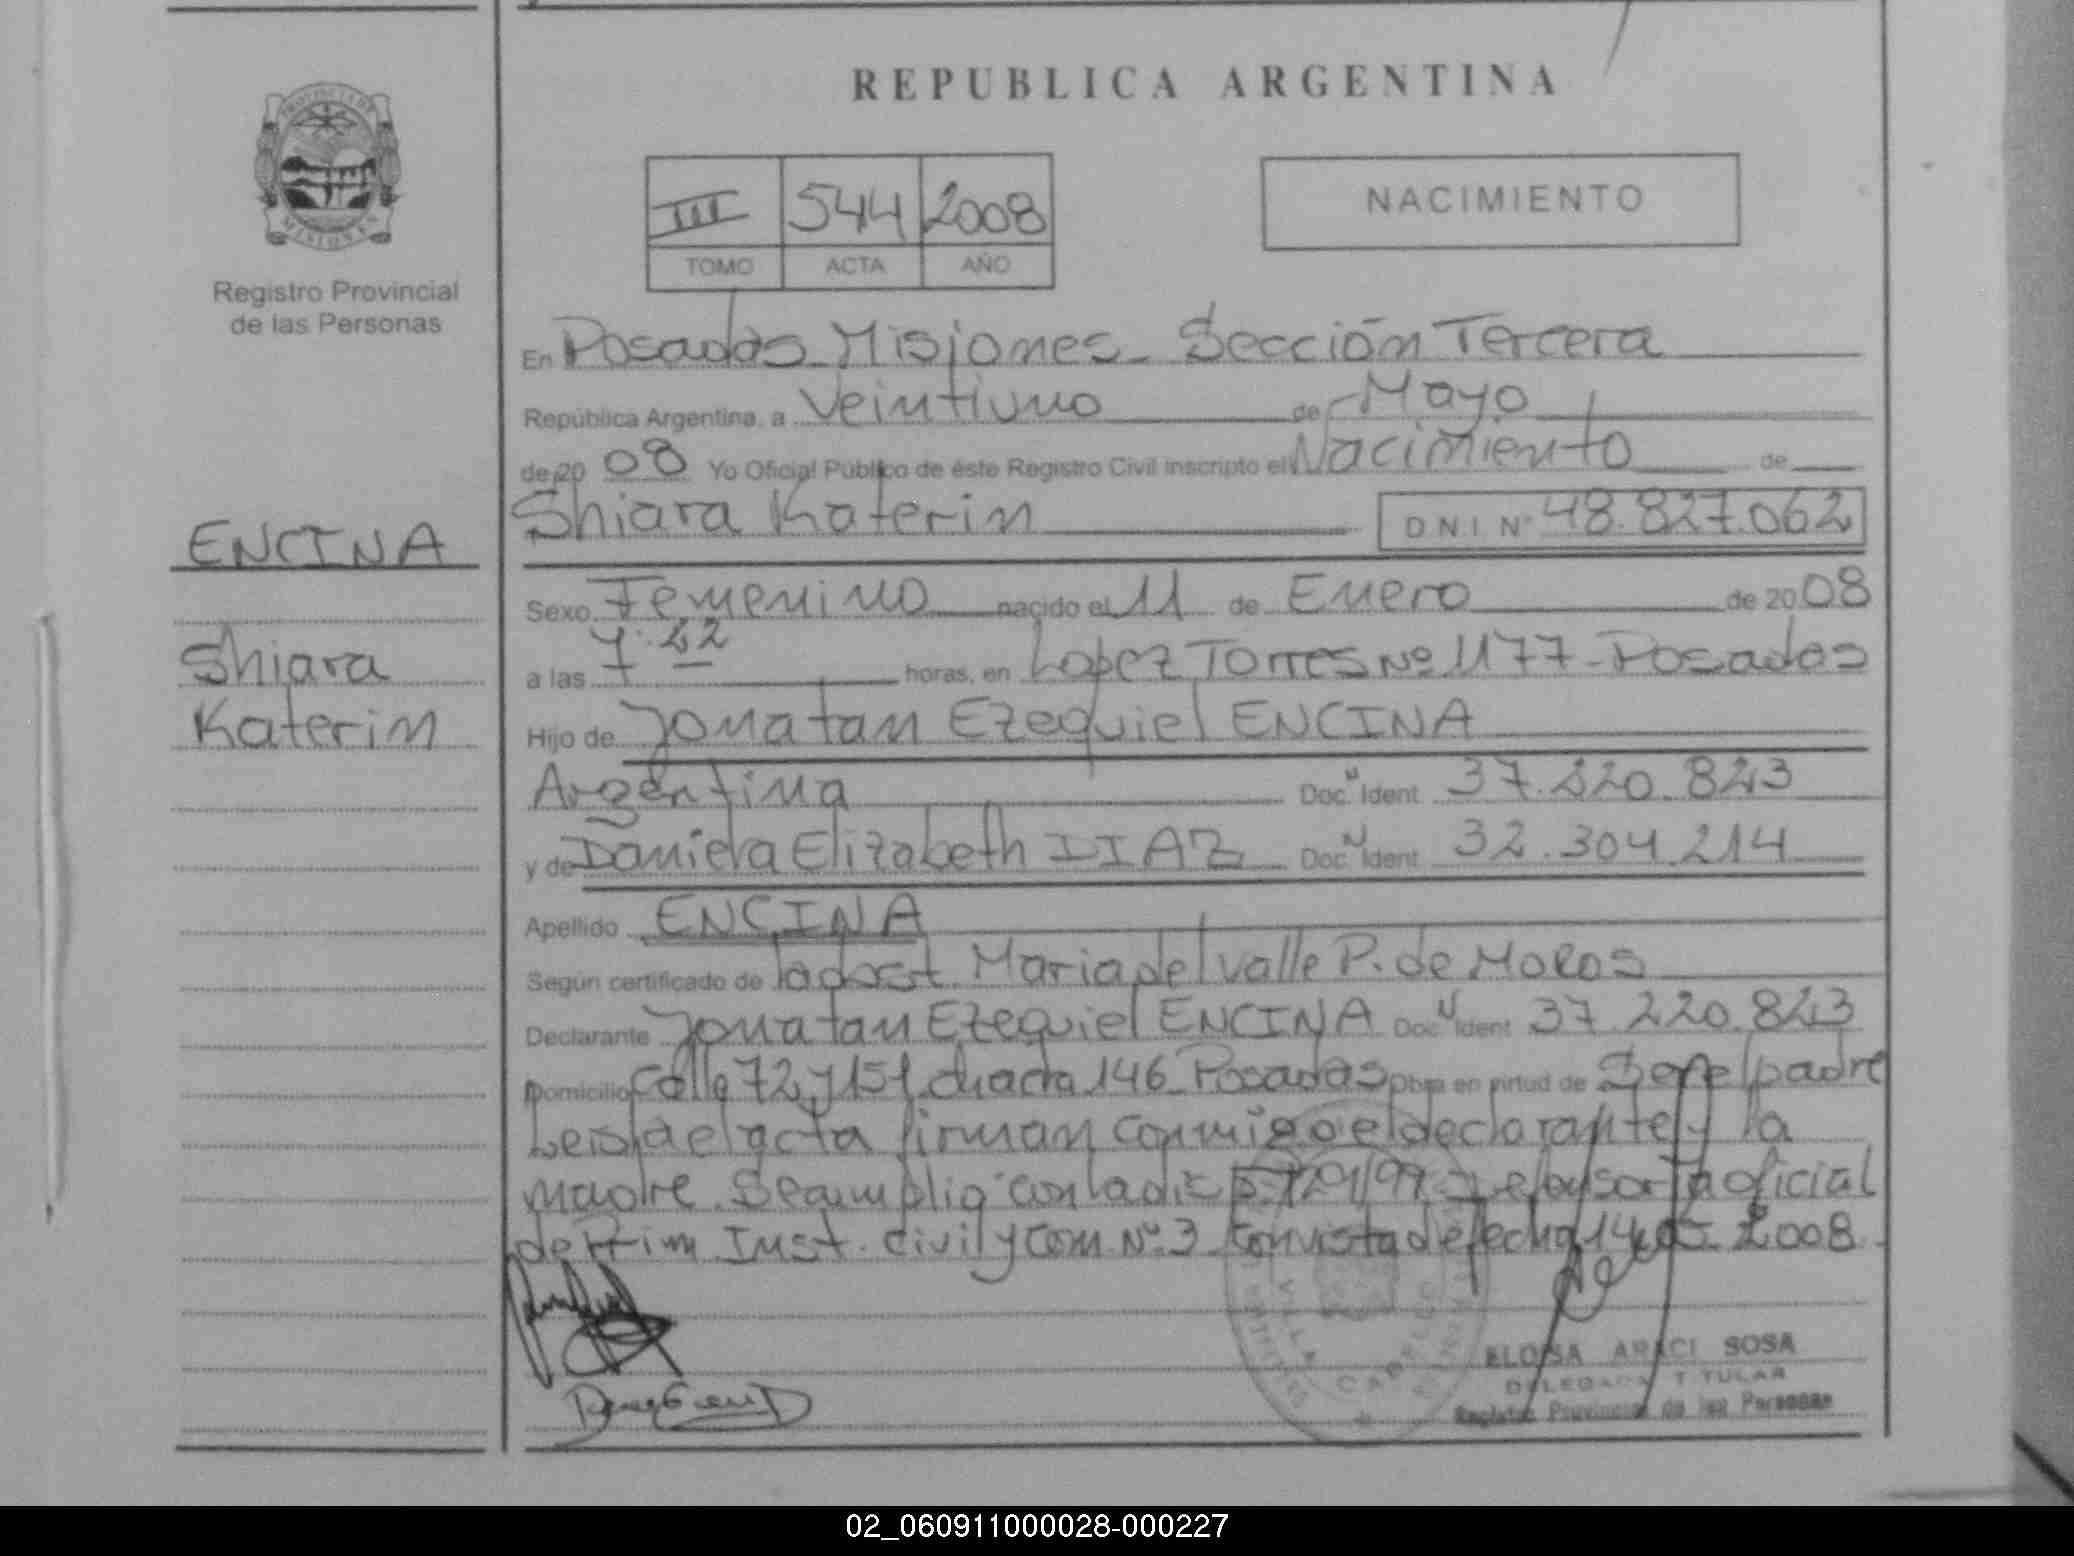 REPUBLICA ARGENTINA
PROVINCIA DE
MISIONES
Registro Provincial
de las Personas
III 544 2008
TOMO ACTA AÑO
NACIMIENTO
En Posadas Misiones - Sección Tercera
República Argentina, a Veintiuno de Mayo
de 20 08 Yo Oficial Público de éste Registro Civil inscripto el Nacimiento de
Shiara Katerin D N I Nº 48.827.062
ENCINA
Shiara
Katerin
Sexo Femenino nacido el 11 de Enero de 20 08
a las horas, en Lopez Torres Nº 1177 - Posadas
Hijo de Jonatan Ezequiel ENCINA
Argentina Doc. Ident 37.220.823
y de Daniela Elizabeth DIAZ Doc. Ident 32.304.214
Apellido ENCINA
Según certificado de la obst. Maria del valle P. de
Declarante Jonatan Ezequiel ENCINA Doc Ident 37.220.823
Domicilio calle 72 y 151 chacra 146 Posadas Obra en virtud de Ser el padre
Leida el acta firman conmigo el declarante y la
madre. Se cumplio con la
de Prim. Inst. civil y Com. Nº 3 con vista de fecha 14-05-2008.
ELOISA ARACI SOSA
DELEGADA TITULAR
Registro Provincial de las Personas
02_060911000028-000227